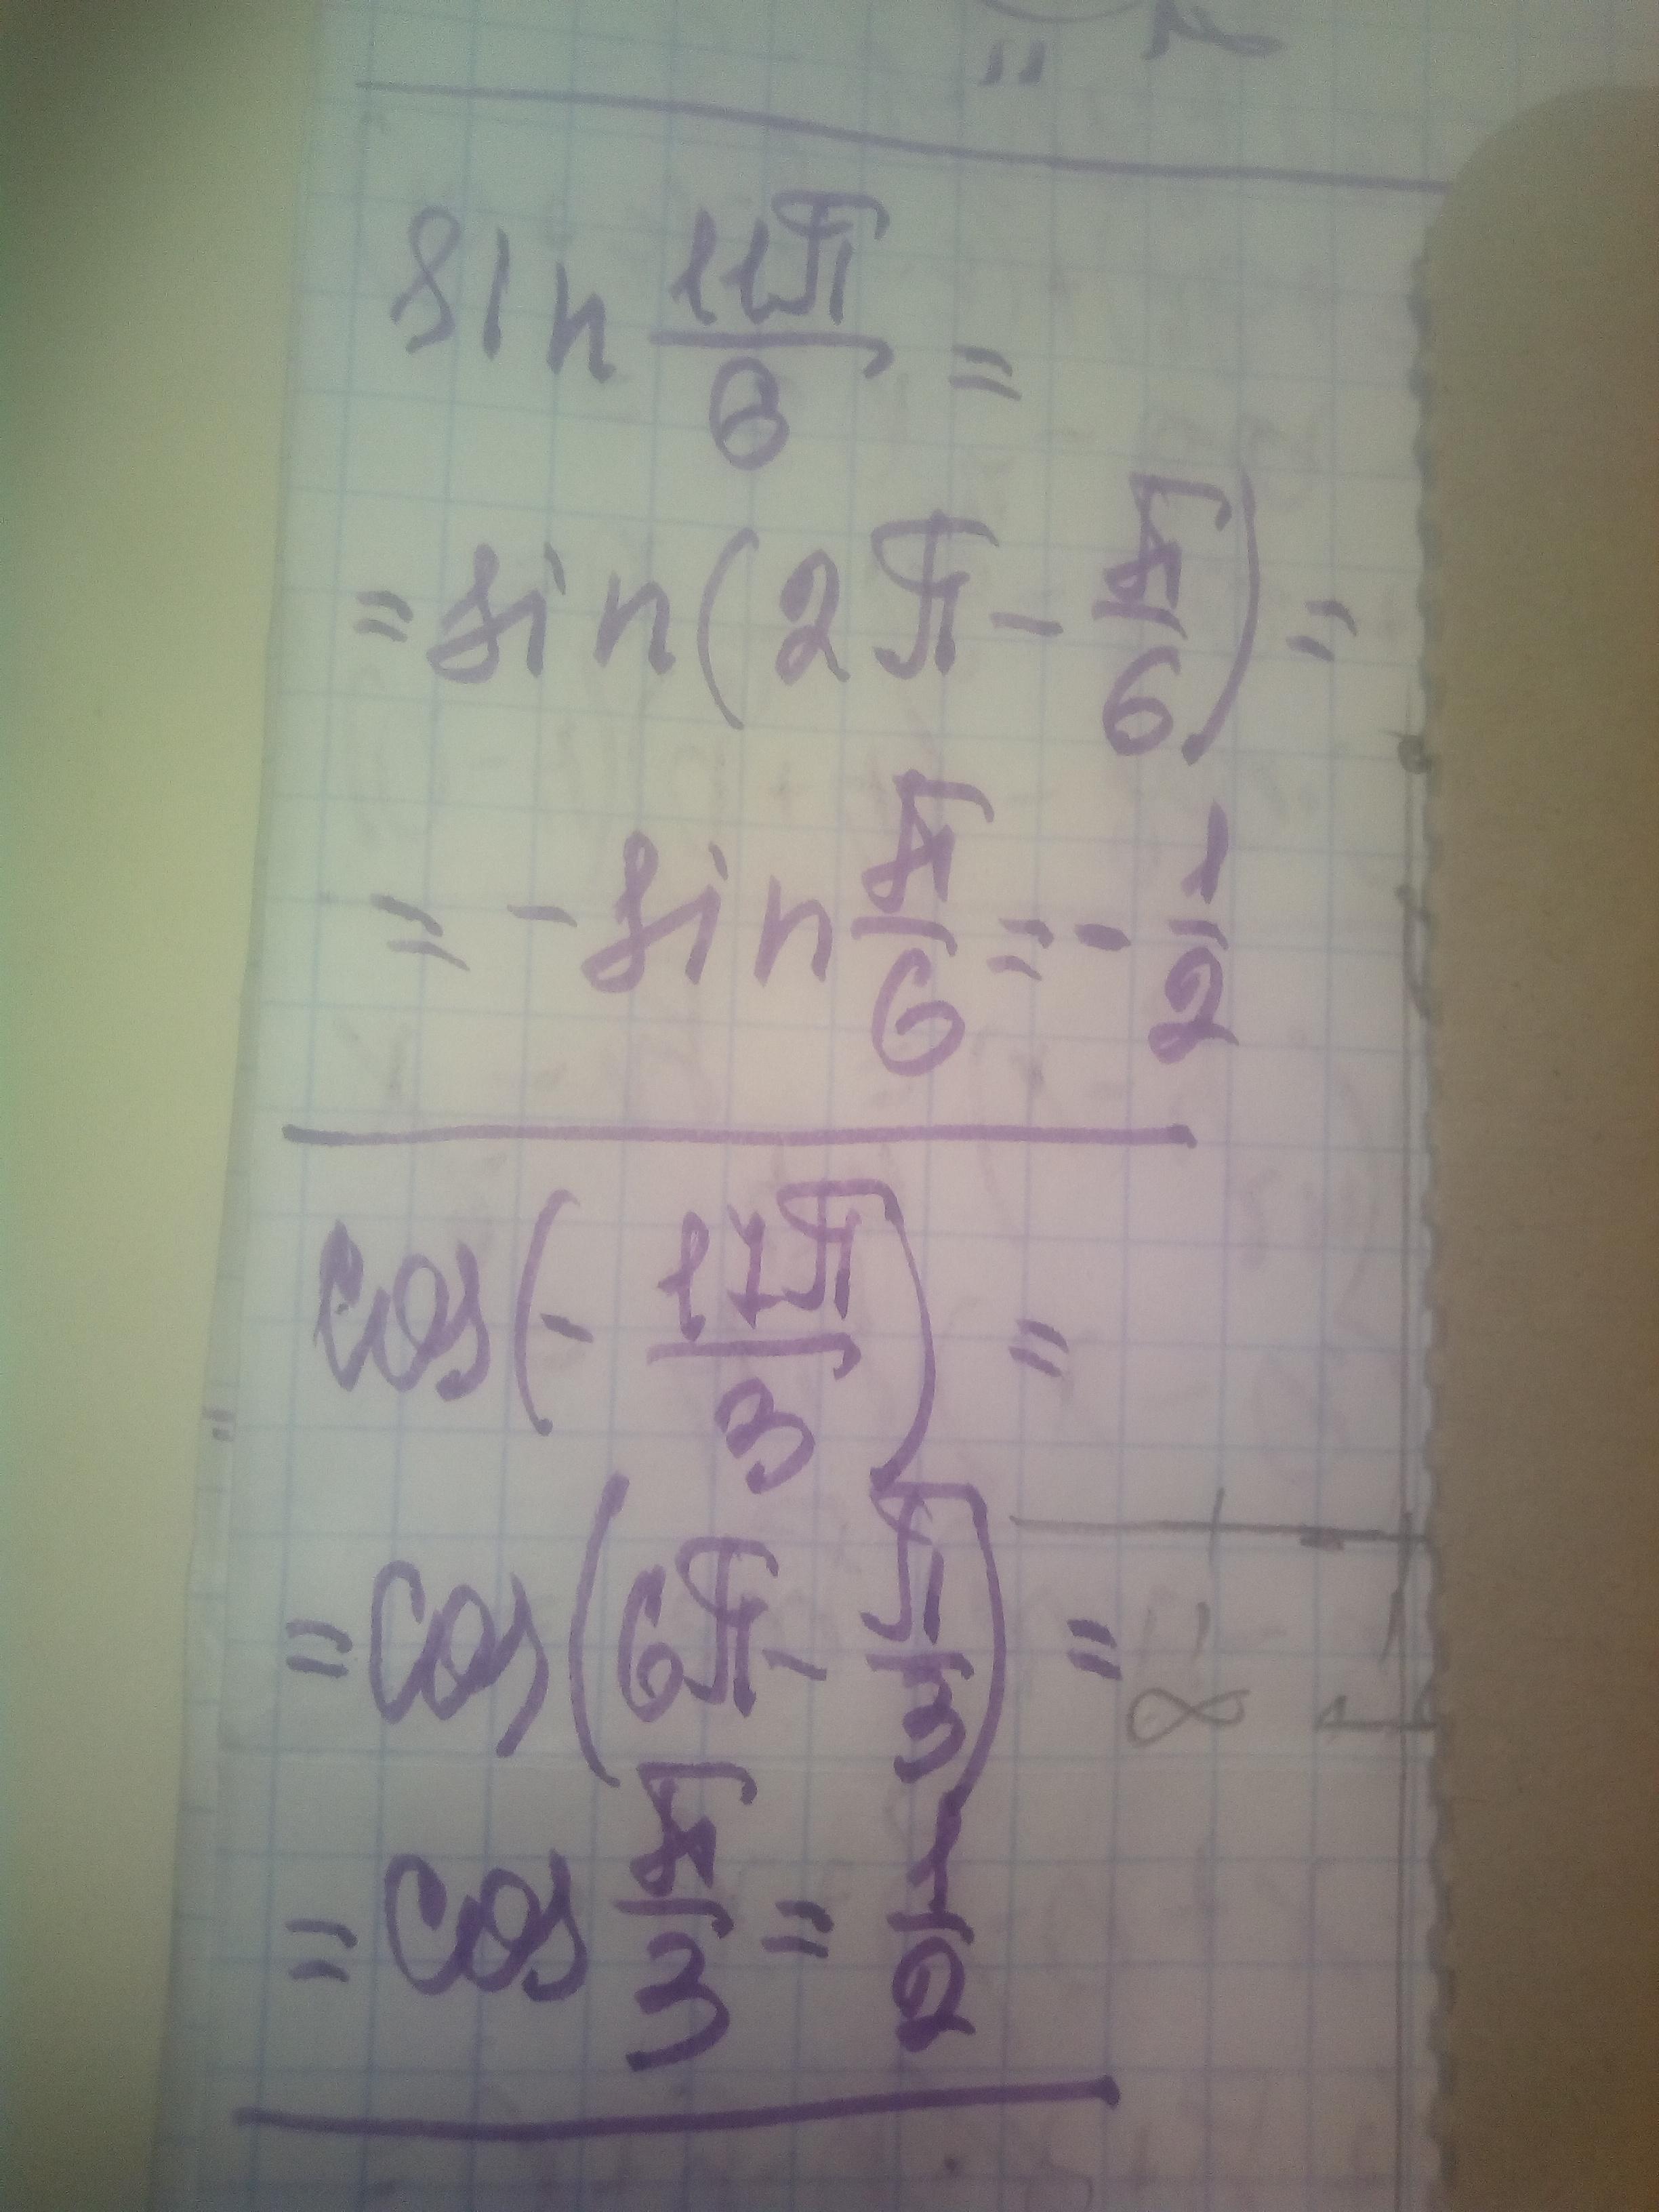 sin 11π/6 =
= sin(2π - π/6) =
= - sin π/6 = - 1/2
cos(- 17π/3) =
= cos(6π - π/3) =
= cos π/3 = 1/2